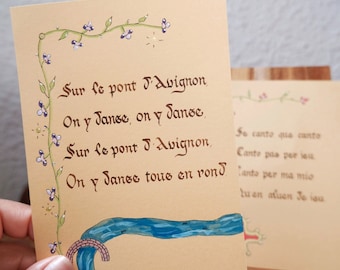 Sur le pont d'Avignon
On y danse, on y danse,
Sur le pont d'Avignon,
On y danse tous en rond
Se canto que canto
Canto pas per ieu,
Canto per ma mio